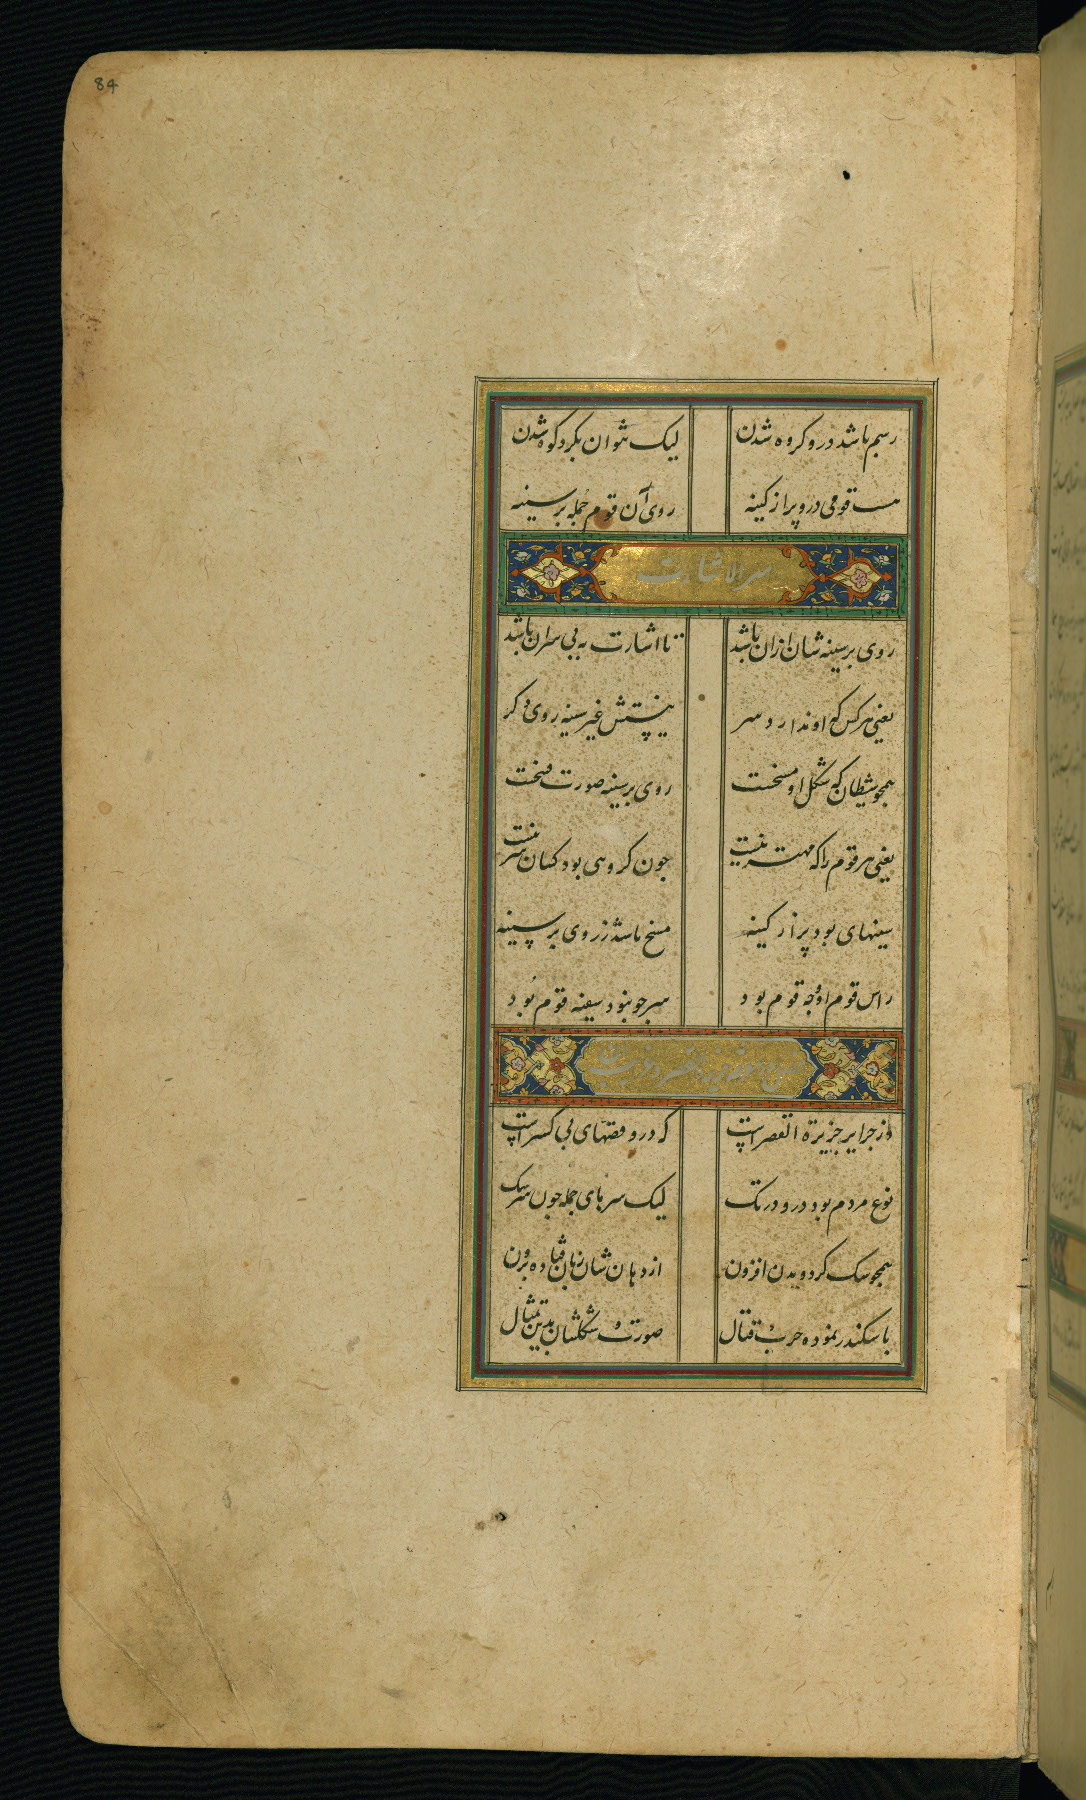 84
رسم باشد درو کروه شدن لیک نتوان بکرد کوه شدن
هست قومی درو پر از کینه روی آن قوم جمله بر سینه
سر الاشارت
روی بر سینه شان ازان باشد تا اشارت به بی سران باشد
یعنی هر کس که او ندارد سر نیستش غیر سینه روی دکر
همجو شیطان که شکل او مسخست روی بر سینه صورت مسخست
یعنی هر قوم را که مهتر نیست جون کروهی بود کشان سر نیست
سینهای بود پر از کینه مسخ باشد ز روی بر سینه
راس قوم او وجه قوم بود سر جو نبود سینه قوم بود
از جزایر جزیرة القصر است که درو قصهای بی کسر است
نوع مردم بود درو در تک لیک سرهای جمله جون سر سک
همجو سک کرد و بدن افزون از دهان شان زبان فتاده برون
با سکندر نموده حرب و قتال صورت و شکلشان بدین تمثال